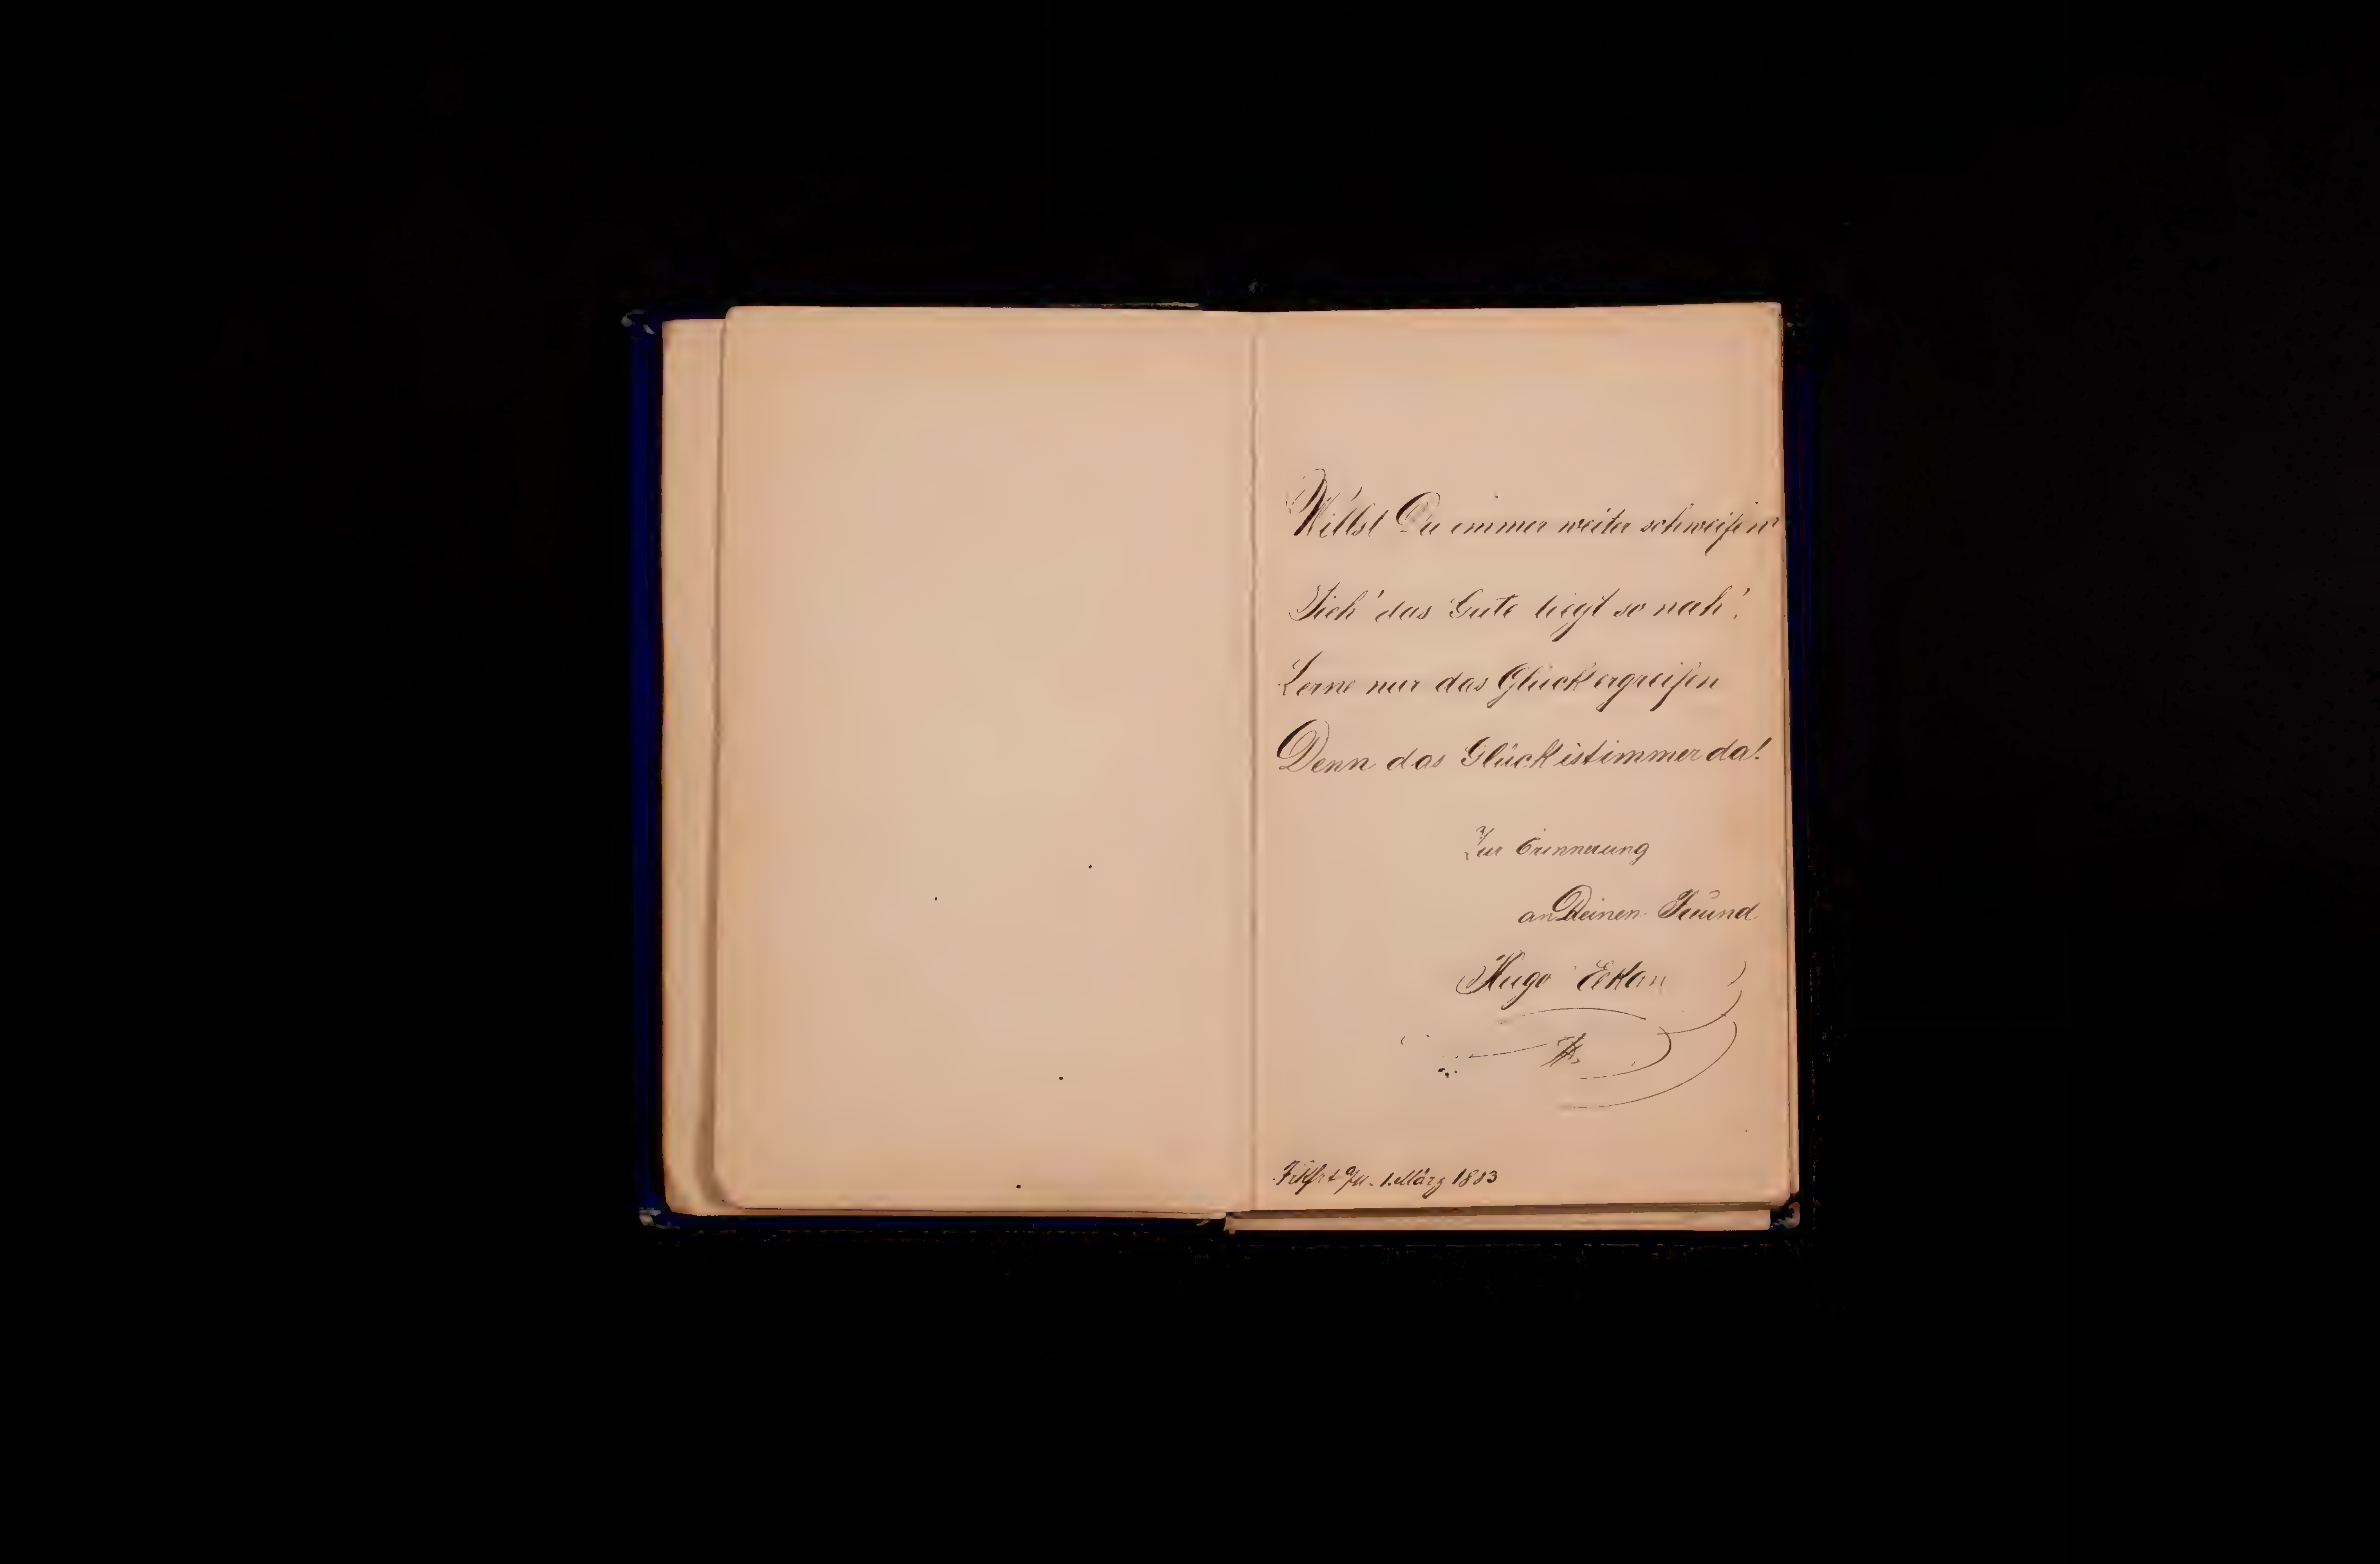 Willst Du immer weiter schweifen
Sieh' das Gute liegt so nah!
Lerne nur das Glück ergreifen
Denn das Glück ist immer da!
Zur Erinnerung
an Deinen Freund
Hugo
1. März 1883